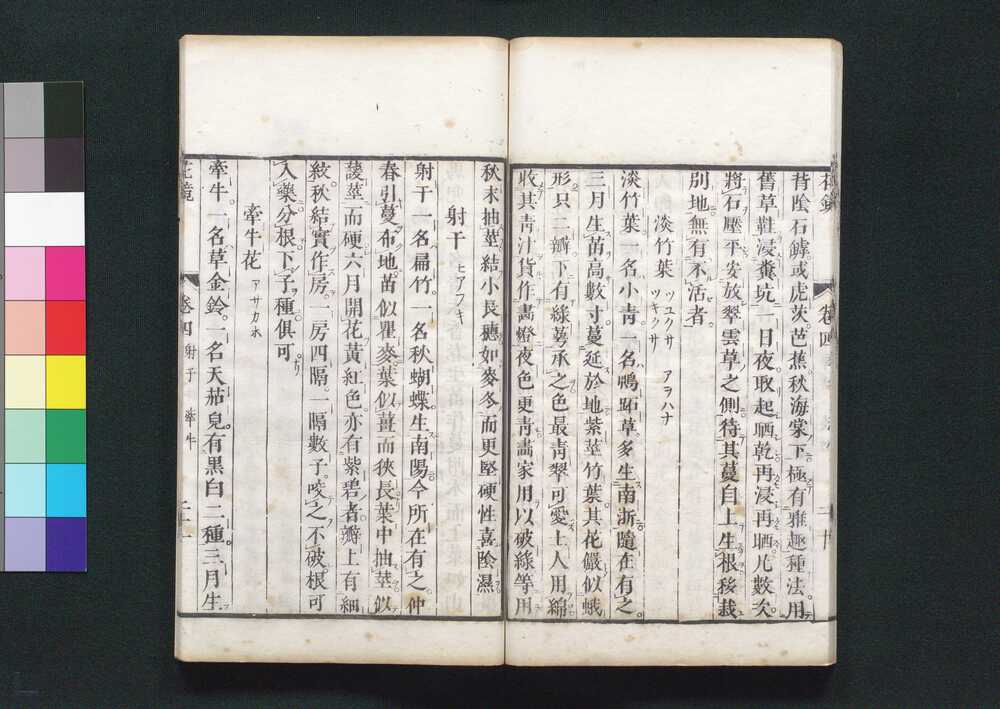 背陰石罅或虎茨芭蕉秋海棠下極有雅趣種法用
舊草鞋浸糞坑一日夜取起晒乾再浸再晒凡數次
將石壓平安放翠雲草之側待其蔓自上生根移栽
別地無有不活者
淡竹葉 ツユクサ ツキクサ アヲハナ
淡竹葉一名小青一名鴨跖草多生南浙隨在有之
三月生苗高數寸蔓延於地紫莖竹葉其花儼似蛾
形只二瓣下有綠萼承之色最青翠可愛土人用綿
收其青汁貨作畫燈夜色更青畫家用以破綠等用
秋末抽莖結小長穗如麥冬而更堅硬性喜陰濕
射干 ヒアフキ
射干一名扁竹一名秋蝴蝶生南陽今所在有之仲
春引蔓布地苗似瞿麥葉似薑而狹長葉中抽莖似
萱莖而硬六月開花黃紅色亦有紫碧者瓣上有細
紋秋結實作房一房四隔一隔數子咬之不破根可
入藥分根下子種俱可
牽牛花 アサカホ
牽牛一名草金鈴一名天茄兒有黑白二種三月生
花鏡 卷四 射干 牽牛 二十一